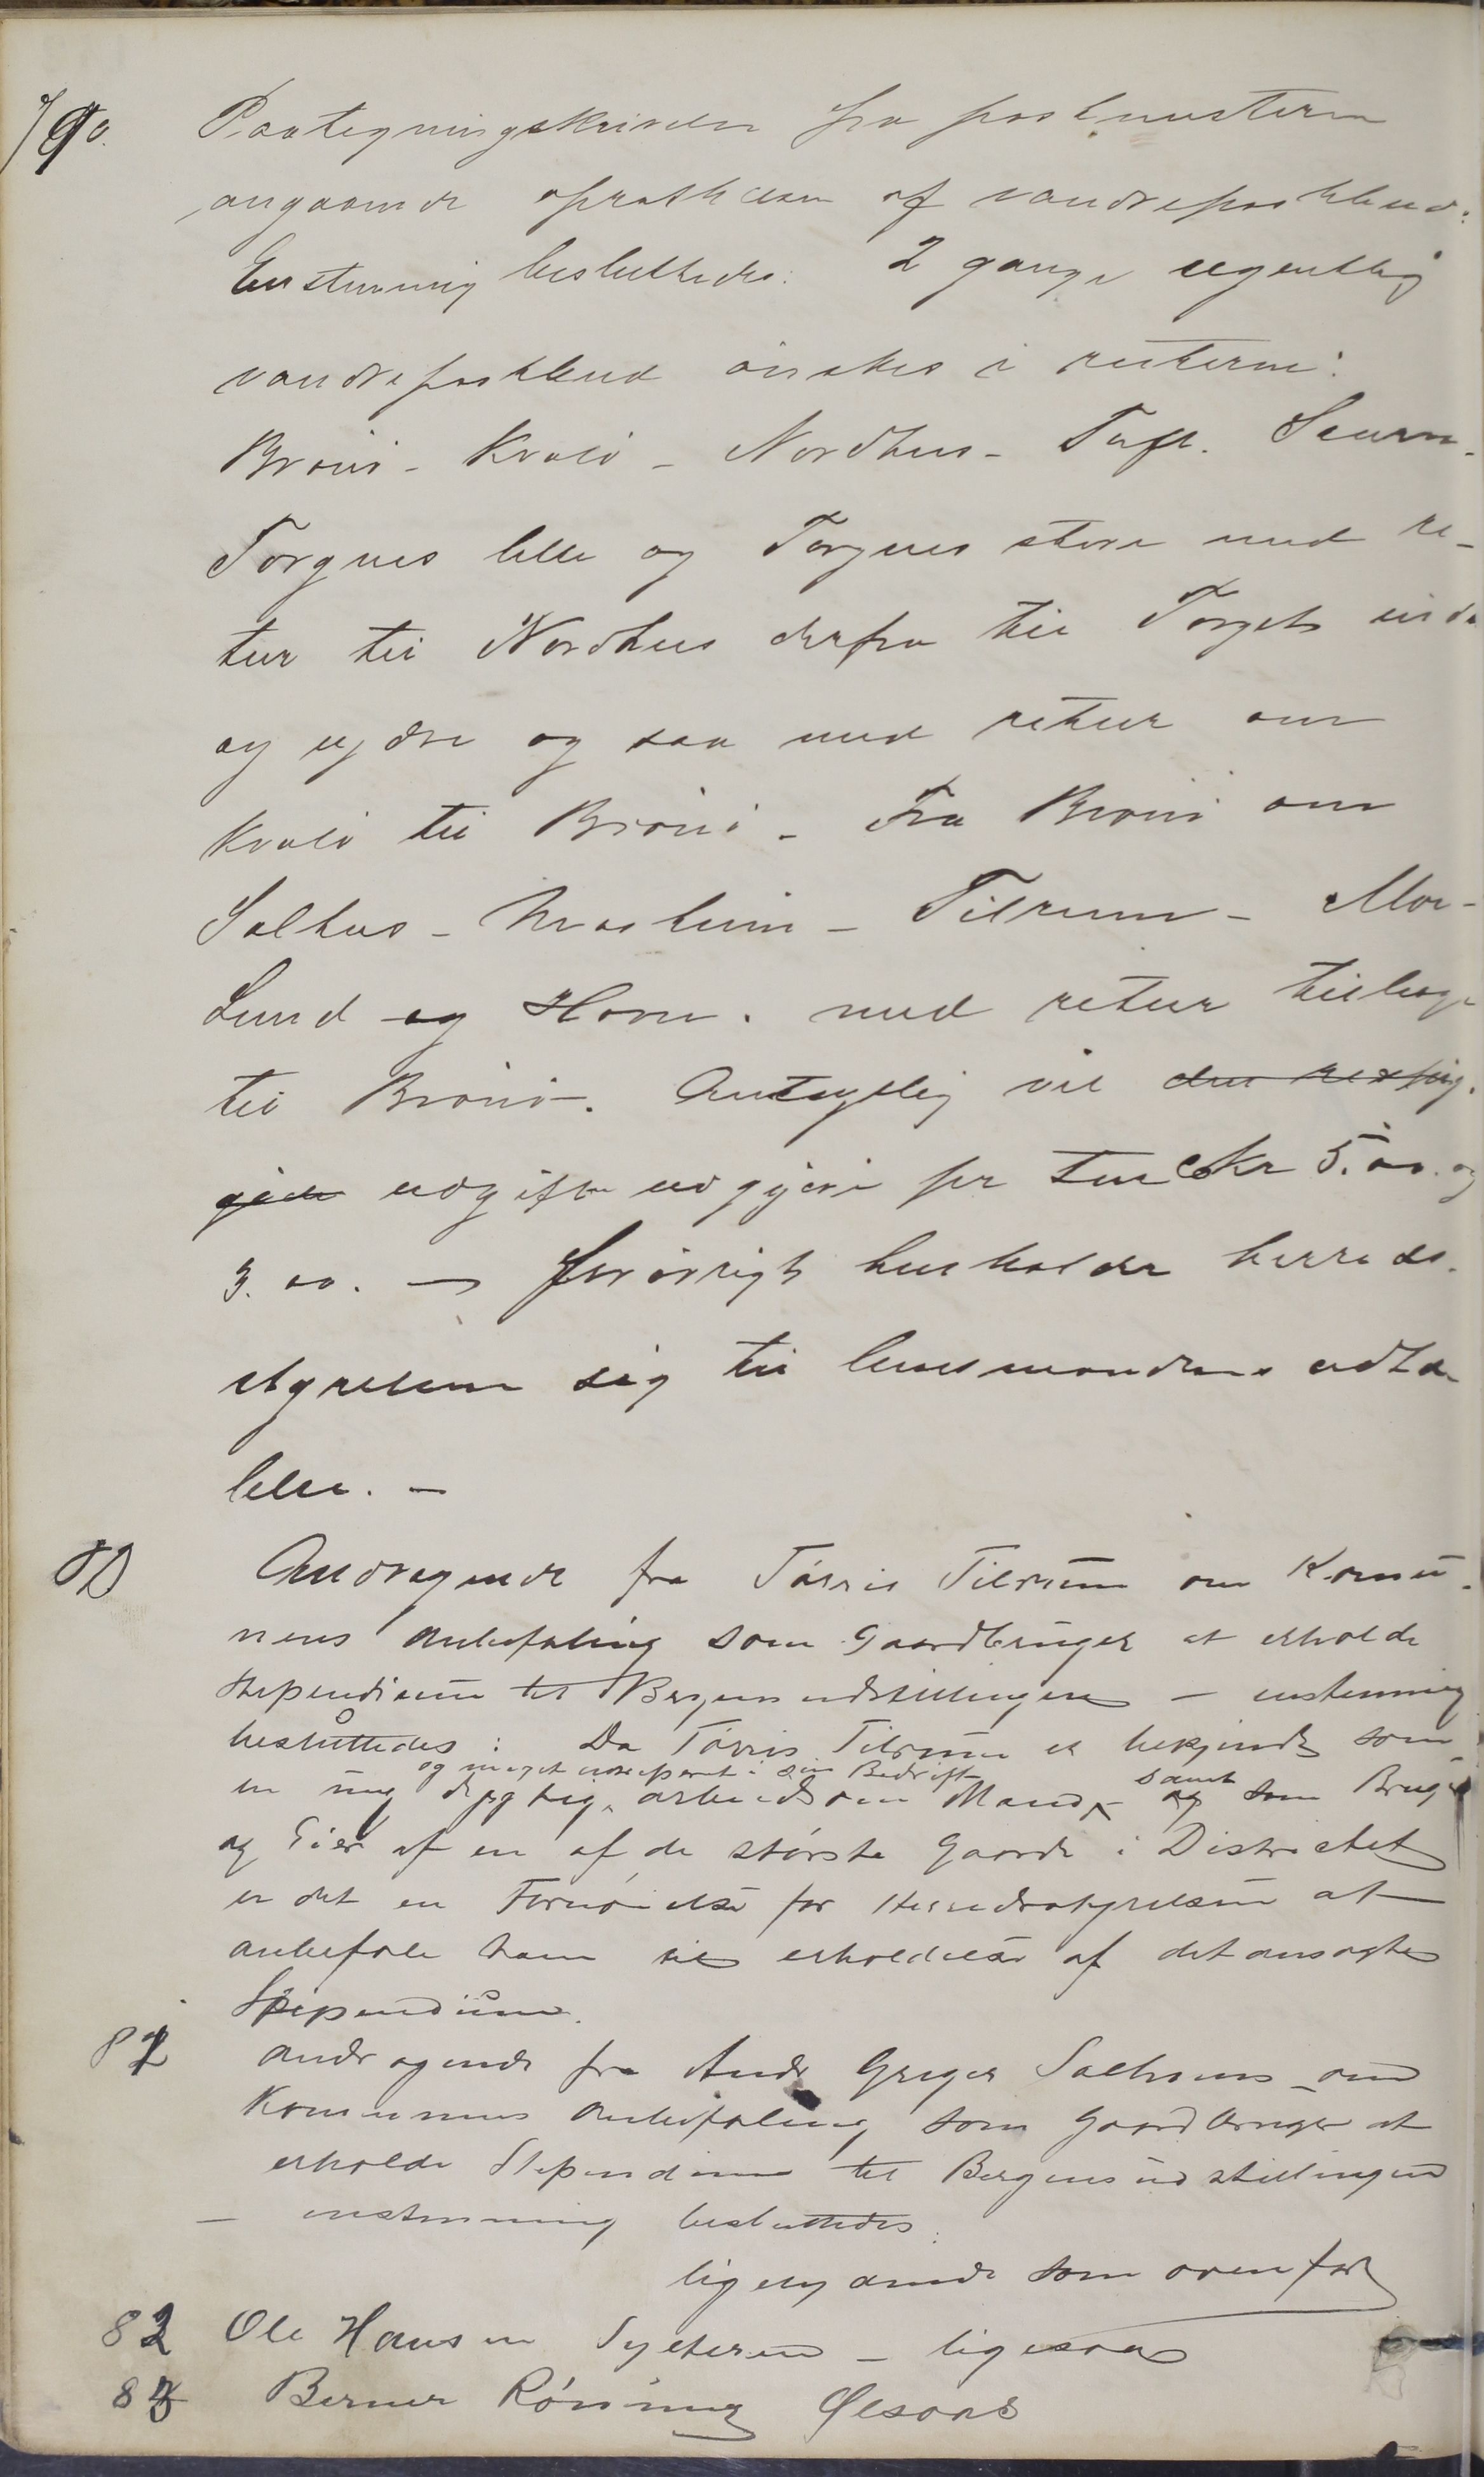 79. Paategningsskrivelse fra postmesteren
angaaende oprettelsen af vandrepostbud.
Enstemmig besluttedes: 2 gange ugentlig
vandrepostbud ønskes i ruterne:
Brønø - Kvalø - Nordhus - Toft. Saurn -
Torgnes lille og Torgnes store med re-
tur til Nordhus derfra til Torget indre
og ydre og saa med retur om
Kvalø til Brønø - Fra Brønø om
Salhus - Mosheim - Tilrum - Moe -
Lund og Horn. med retur tilbage
til Brønø. Antagelig vil den rest
udgifte udgjøre pr tur Kr 5.00. og
3.00. - Forøvrigt henholder herreds-
styrelsen sig til lensmandens udta-
lelse. -
80 Andragende fra Tørris Tilrum om Kommu-
nens anbefaling som Gaardbruger at erholde
Stipendium til Bergensudstillingen - enstemmig
besluttedes: Da Tørris Tilrum er bekjendt som
og meget i sin Bedrift samt
en ung dygtig, arbeidsom Mand, og som Bruger
og Eier af en af de største Gaarde i Districtet
er det en Fornøielse for Herredsstyrelsen at
anbefale ham til erholdelse af det ansøgte
Stipendium.
81 Andragende fra Andr Greger Salhus om
Kommunens Anbefaling som Gaardbruger at
erholde Stipendium til Bergensudstillingen
- enstemmig besluttedes:
ligelydende som ovenfor
82 Ole Hansen Sylteren - ligesaa
83 Berner Rønning Ligesaa